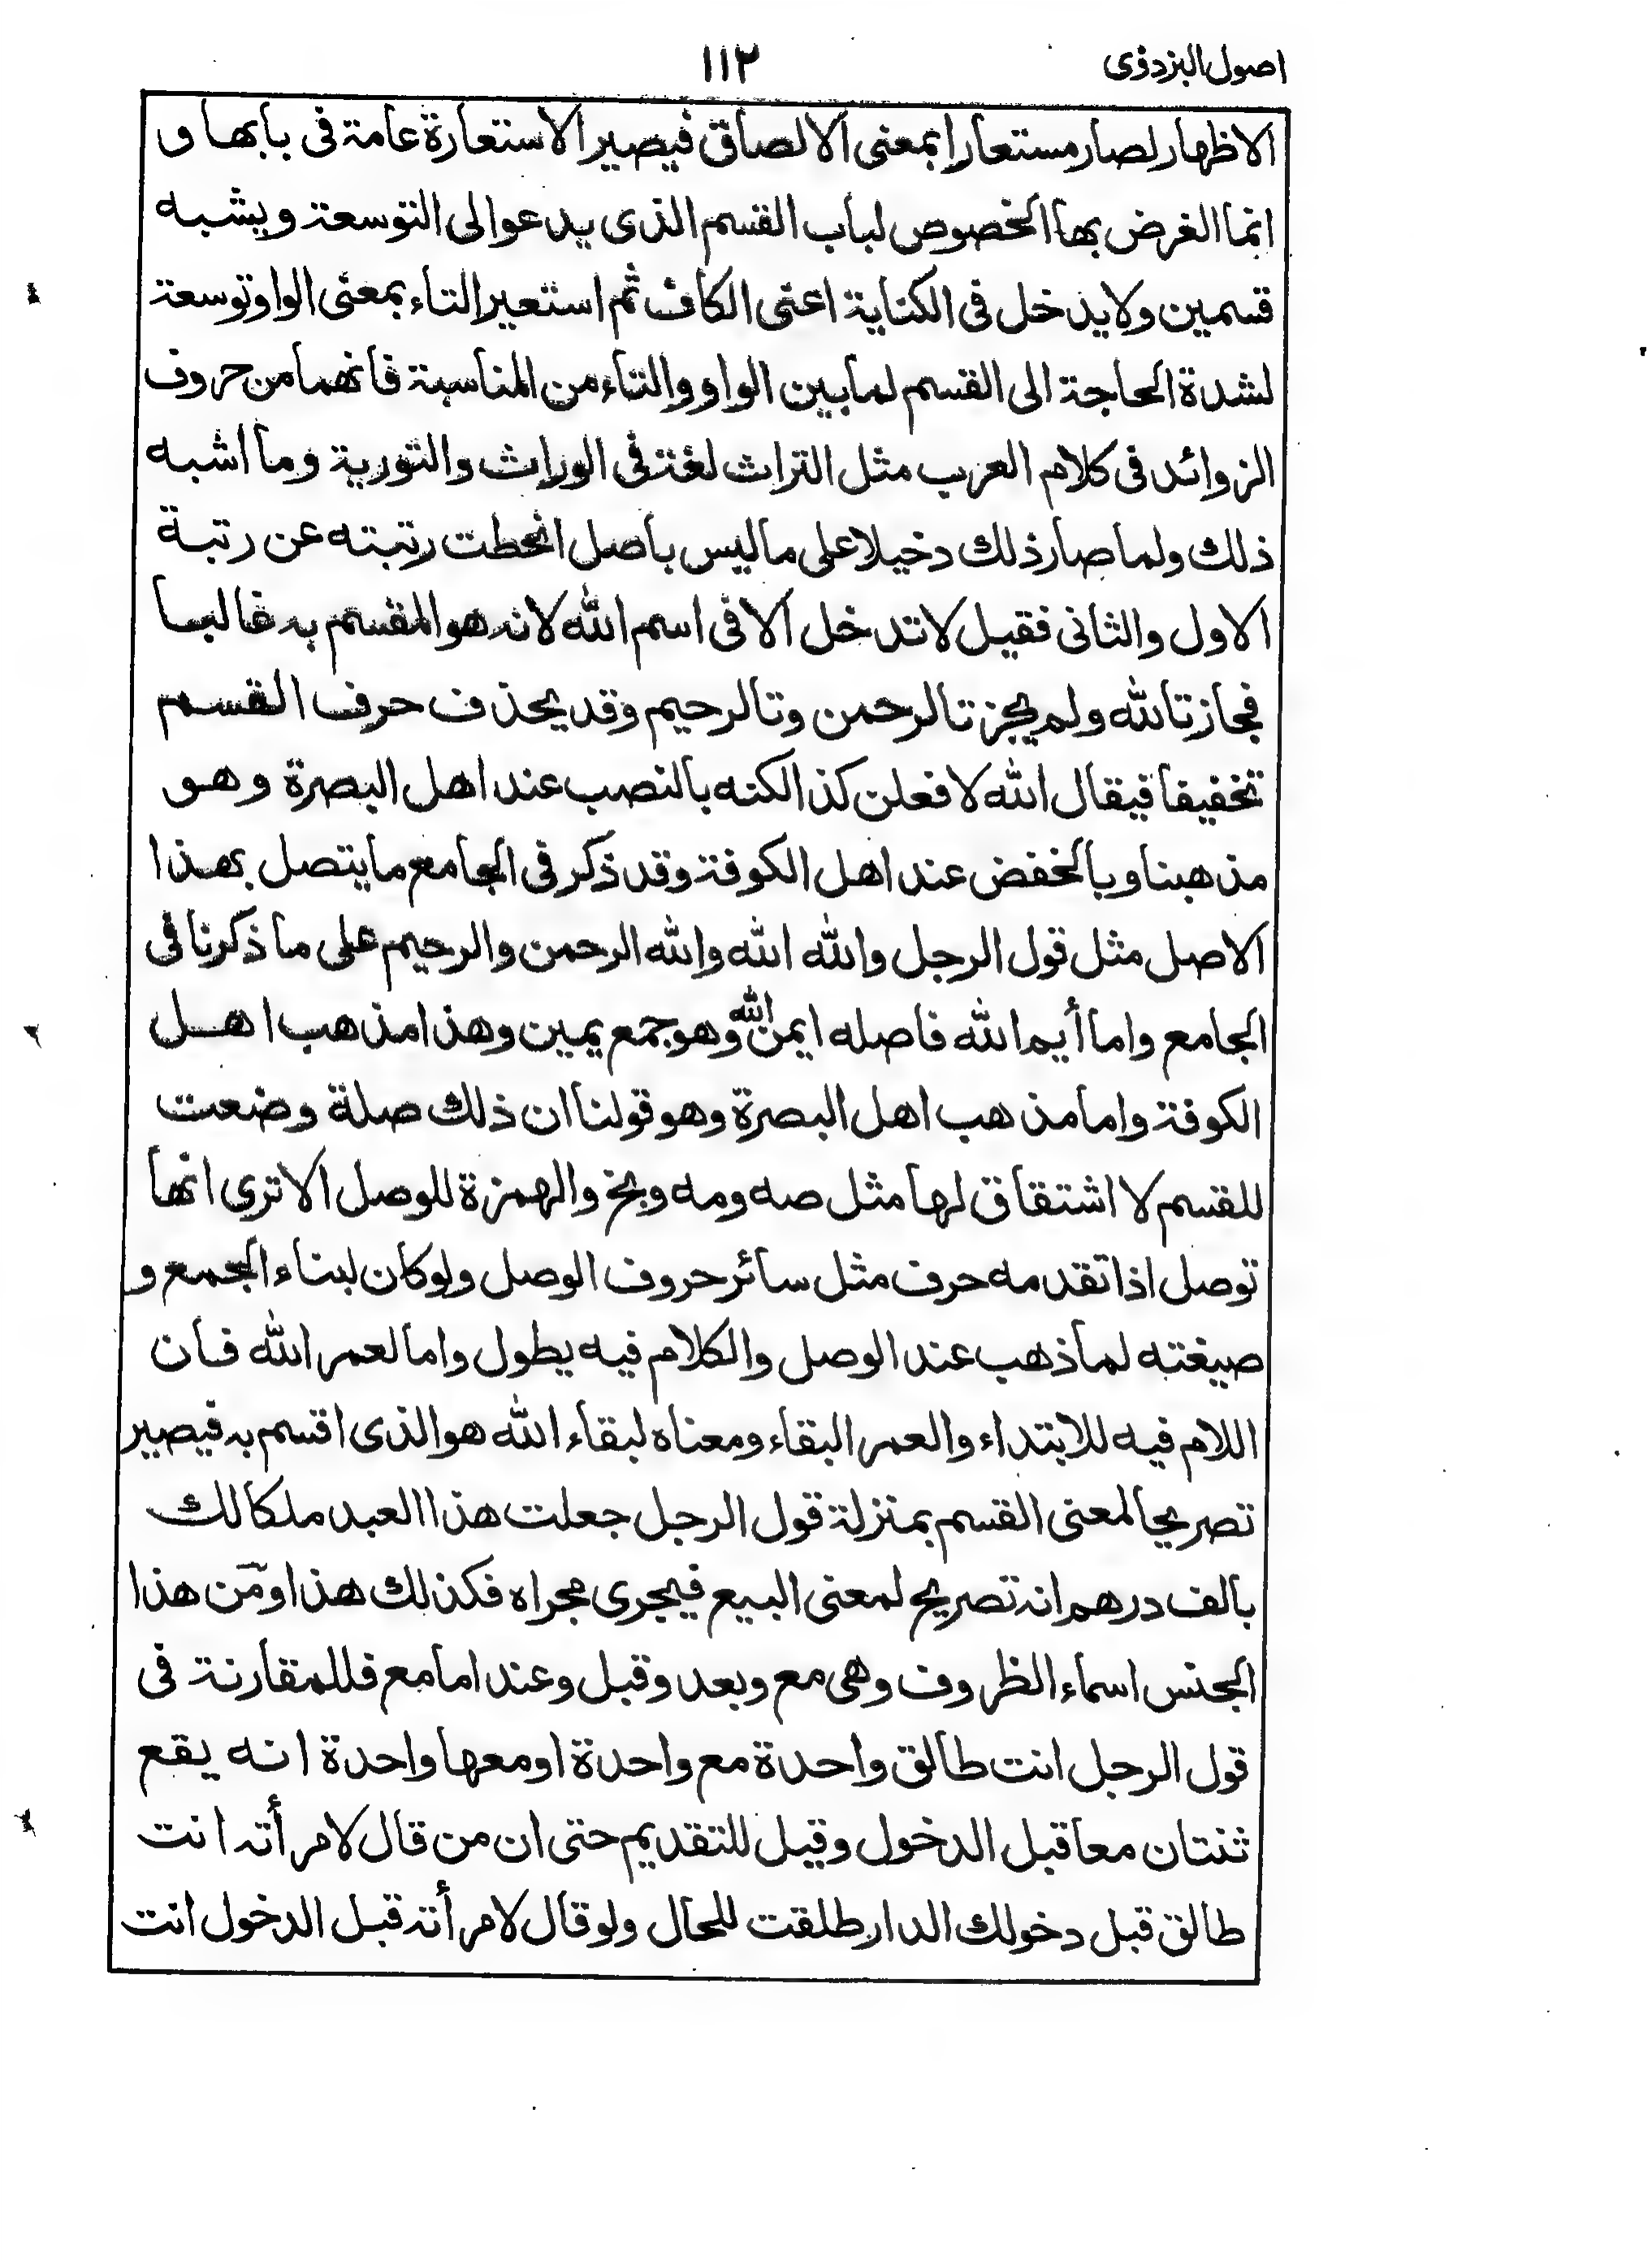 اصول البزدوى ١١٢
الاظهار لصار مستعارا بمعنى الالصاق فيصير الاستعارة عامة فى بابها و
انما الغرض بها الخصوص لباب القسم الذى يدعوا لى التوسعة ويشبه
قسمين ولا يدخل فى الكناية اعنى الكاف ثم استعير التاء بمعنى الواو توسعة
لشدة الحاجة الى القسم لما بين الواو والتاء من المناسبة فانهما من حروف
الزوائد فى كلام العرب مثل التراث لغة فى الوراث والتورية وما اشبه
ذلك ولما صار ذلك دخيلا على ما ليس باصل انحطت رتبته عن رتبة
الاول والثانى فقيل لا تدخل الا فى اسم الله لانه هو المقسم به غالبا
فجاز تالله ولم يجز تالرحمن وتالرحيم وقد يحذف حرف القسم
تخفيفا فيقال الله لافعلن كذا لكنه بالنصب عند اهل البصرة وهو
مذهبنا وبالخفض عند اهل الكوفة وقد ذكر فى الجامع ما يتصل بهذا
الاصل مثل قول الرجل والله الله والله الرحمن والرحيم على ما ذكرنا فى
الجامع واما أيم الله فاصله ايمن الله وهو جمع يمين وهذا مذهب اهل
الكوفة واما مذهب اهل البصرة وهو قولنا ان ذلك صلة وضعت
للقسم لا اشتقاق لها مثل صه ومه وبخ والهمزة للوصل الا ترى انها
توصل اذا تقدمه حرف مثل سائر حروف الوصل ولو كان لبناء الجمع و
صيغته لما ذهب عند الوصل والكلام فيه يطول واما لعمر الله فان
اللام فيه للابتداء والعمر البقاء ومعناه لبقاء الله هو الذى اقسم به فيصير
تصريحا لمعنى القسم بمنزلة قول الرجل جعلت هذا العبد ملكا لك
بالف درهم انه تصريح لمعنى البيع فيجرى مجراه فكذلك هذا ومن هذا
الجنس اسماء الظروف وهى مع وبعد وقبل وعند اما مع فللمقارنة فى
قول الرجل انت طالق واحدة مع واحدة او معها واحدة انه يقع
ثنتان معا قبل الدخول وقيل للتقديم حتى ان من قال لامرأته انت
طالق قبل دخولك الدار طلقت للحال ولو قال لامرأته قبل الدخول انت